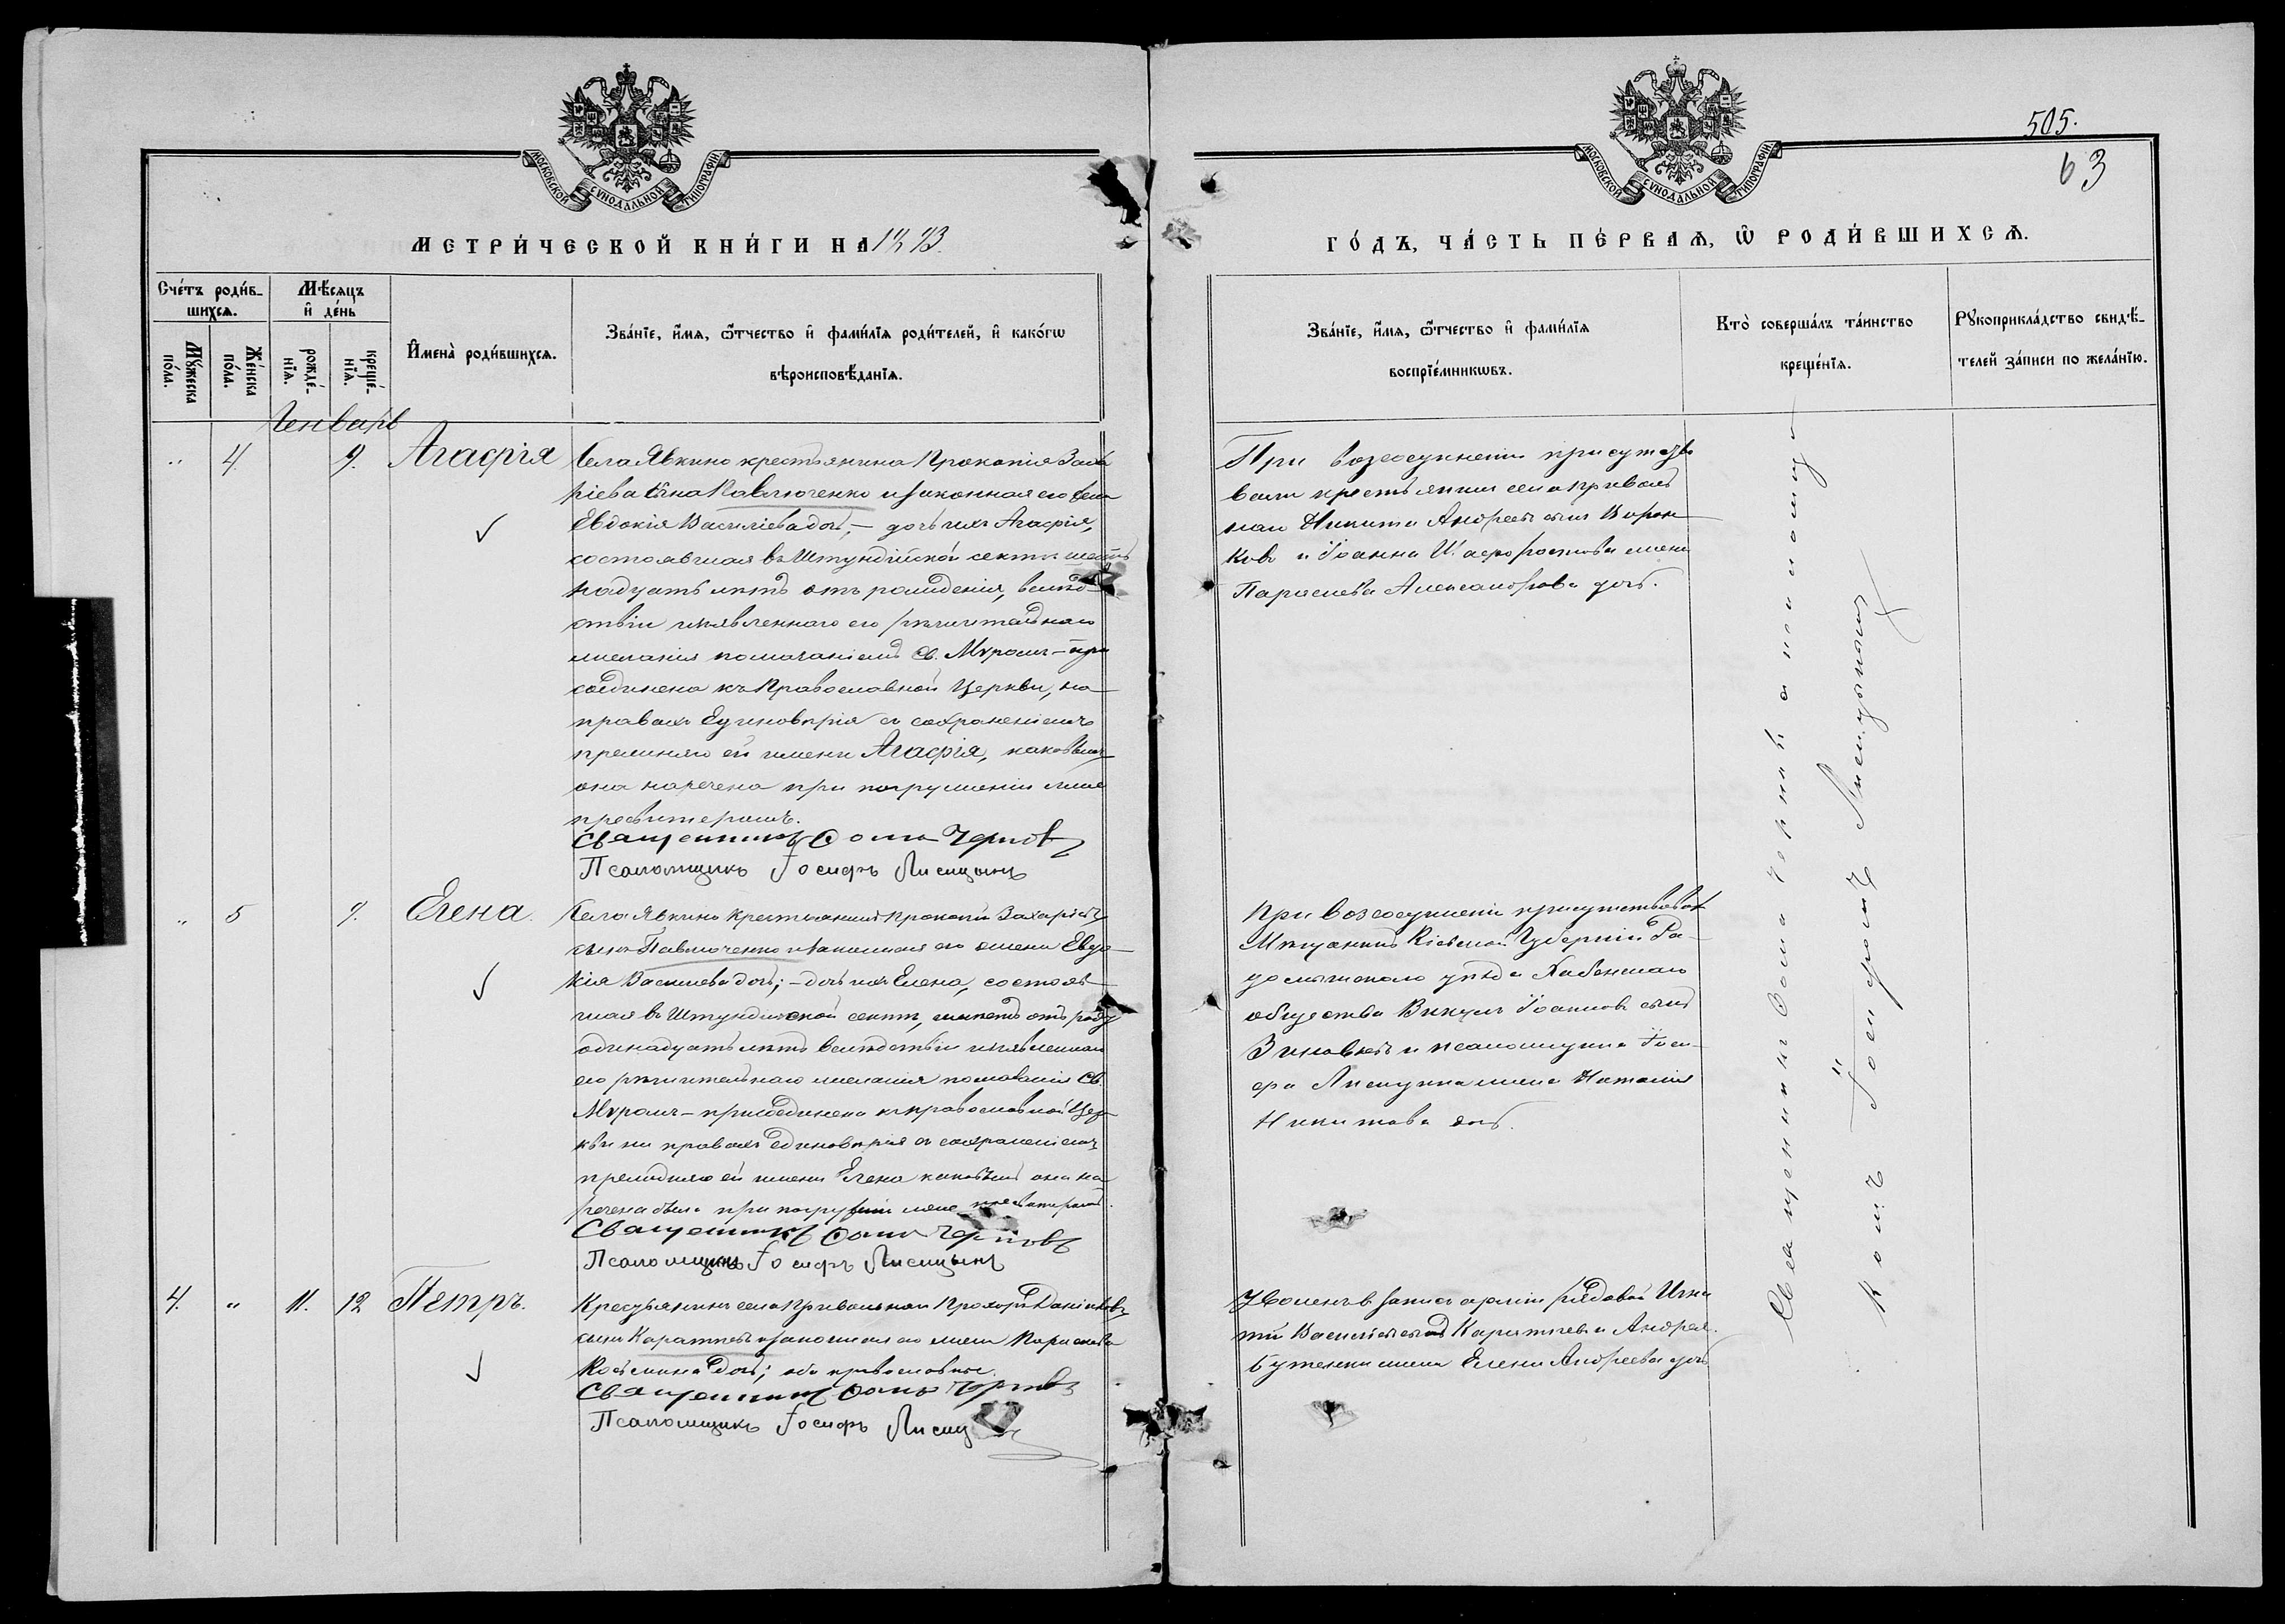 505.
63
МОСКОВСКОЙ СѴНОДАЛЬНОЙ ТИПОГРАФІИ
МОСКОВСКОЙ СѴНОДАЛЬНОЙ ТИПОГРАФІИ
МЕТРИ́ЧЕСКОЙ КНИ́ГИ НА 18 93.
ГО́ДЪ, ЧА́СТЬ ПЕ́РВАѦ, Ѡ҆ РОДИ́ВШИХСѦ.
Сче́тъ роди́в-
шихсѧ.
Мꙋ́жеска по́ла.
Же́нска по́ла.
Мѣ́сѧцъ
и҆ де́нь
рожде́-
нїѧ.
креще́-
нїѧ.
И҆мена̀ роди́вшихсѧ.
Зва́нїе, и҆́мѧ, ѻ҆́тчество и҆ фами́лїѧ роди́телей, и҆ како́гѡ
вѣроисповѣ́данїѧ.
Зва́нїе, и҆́мѧ, ѻ҆́тчество и҆ фами́лїѧ
воспрїе́мникѡвъ.
Кто̀ соверша́лъ та́инство
креще́нїѧ.
Рꙋкоприкла́дство свидѣ́-
телей за́писи по жела́нїю.
Генварь
" 4 9. Агафія
Села Явкино крестьянина Прокопія Заха
ріева сына Павлюченко и законная его жена
Евдокія Василіева дочь, — дочь ихъ Агафія,
состоявшая въ Штундійской секты шест
надцать лѣтъ отъ рожденія, вслѣд
ствіи изъявленнаго ею рѣшительнаго
желанія помазаніемъ Св. Мѵромъ — при
соединена къ Православной Церкви, на
правахъ Единовѣрія съ сохраненіемъ
прежняго ей имени Агафія, каковымъ
она наречена при погруженіи лже
пресвитеромъ.
Священникъ Ѳома Черновъ
Псаломщикъ Іосифъ Лисицынъ
При возсоединеніи присутство
вали крестьянин села Привол
наго Никита Андреевъ сынъ Ворон
ковъ и Іоанна жена
Параскева Александрова дочь.
" 5 9. Елена.
Села Явкино крестьянинъ Прокопій Захаріевъ
сынъ Павлюченко и законная его жена Евдо
кія Василіева дочь; — дочь ихъ Елена, состояв
шая въ Штундійской сектѣ, отъ роду
одинадцать лѣтъ вслѣдствіи изъявленнаго
ею рѣшительнаго желанія помазанія Св.
Мѵромъ — присоединена къ православной Цер
кви на правахъ единовѣрія съ сохраненіемъ
прежняго ей имени Елена каковымъ она на
речена была при погруженіи лже пресвитеромъ.
Священникъ Ѳома Черновъ
Псаломщикъ Іосифъ Лисицынъ
При возсоединеніи присутствовал
Мѣщанинъ Кіевской Губерніи Ра-
домысльскаго уѣзда Хабенскаго
общества Викулъ Іоанновъ сынъ
Зиновьевъ и псаломщика Іоси-
фа Лисицына жена Наталія
Никитова дочь.
4. " 11. 12 Петръ.
Крестьянинъ села Привольнаго Прохоръ Даніиловъ
сынъ Каратѣевъ и законная его жена Параскева
Косьмина дочь; оба православные.
Священникъ Ѳома Черновъ
Псаломщикъ Іосифъ Лисиц
Уволенъ в запасъ арміи рядовой Игна
тій Василіевъ сынъ Каратѣевъ и Андрея
Бутенки жена Елена Андреева дочь
Священникъ Ѳома Черновъ и псаломщ
икомъ Іосифомъ Лисицынымъ